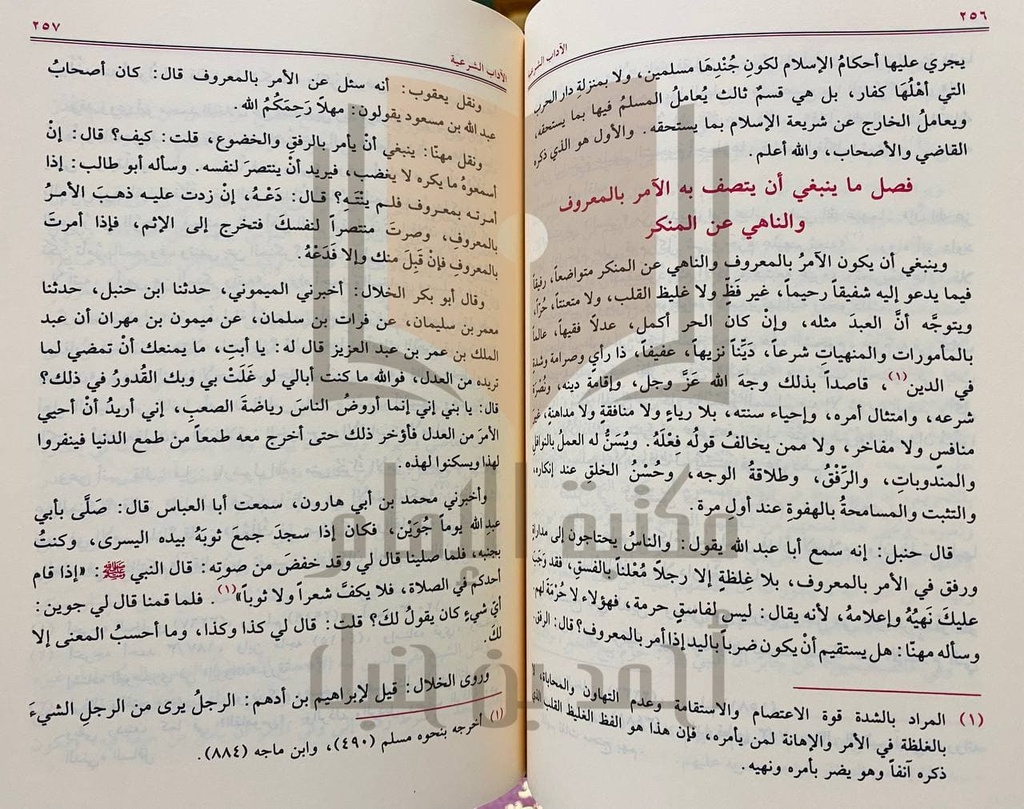 ٢٥٦
الآداب الشرعية
يجري عليها أحكامُ الإسلام لكونِ جُنْدِهَا مسلمين، ولا بمنزلةِ دار الحرب
التي أهْلُهَا كفار، بل هي قسمٌ ثالث يُعاملُ المسلمُ فيها بما يستحقه،
ويعاملُ الخارج عن شريعة الإسلام بما يستحقه. والأول هو الذي ذكره
القاضي والأصحاب، والله أعلم.
فصل ما ينبغي أن يتصف به الآمر بالمعروف
والناهي عن المنكر
وينبغي أن يكون الآمرُ بالمعروف والناهي عن المنكر متواضعاً، رفيقاً
فيما يدعو إليه شفيقاً رحيماً، غير فَظٍّ ولا غليظ القلب، ولا متعنتاً، حُرّاً،
ويتوجَّه أنَّ العبدَ مثله، وإنْ كان الحر أكمل، عدلاً فقيهاً، عالماً
بالمأمورات والمنهياتِ شرعاً، دَيِّناً نزيهاً، عفيفاً، ذا رأيٍ وصرامة وشدةٍ
في الدين(١)، قاصداً بذلك وجهَ الله عَزَّ وجل، وإقامة دينه، ونُصْرَة
شرعه، وامتثال أمره، وإحياء سنته، بلا رياءٍ ولا منافقةٍ ولا مداهنةٍ، غيرَ
منافسٍ ولا مفاخر، ولا ممن يخالفُ قولُه فِعْلَهُ. ويُسَنُّ له العملُ بالنوافل
والمندوباتِ، والرِّفْقُ، وطلاقةُ الوجه، وحُسْنُ الخلقِ عند إنكاره،
والتثبت والمسامحةُ بالهفوةِ عند أول مرة.
قال حنبل: إنه سمع أبا عبد الله يقول: والناسُ يحتاجون إلى مداراة
ورفق في الأمر بالمعروف، بلا غِلظةٍ إلا رجلاً مُعْلناً بالفسقِ، فقد وَجَبَ
عليكَ نَهْيُهُ وإعلامهُ، لأنه يقال: ليس لفاسقٍ حرمة، فهؤلاء لا حُرْمَةَ لهم.
وسأله مهنّا: هل يستقيم أنْ يكون ضرباً باليد إذا أمر بالمعروف؟ قال: الرفق.
(١) المراد بالشدة قوة الاعتصام والاستقامة وعدم التهاون والمحاباة، لا
بالغلظة في الأمر والإهانة لمن يأمره، فإن هذا هو الفظ الغليظ القلب الذي
ذكره آنفاً وهو يضر بأمره ونهيه.
الآداب الشرعية
٢٥٧
ونقل يعقوب: أنه سئل عن الأمر بالمعروف قال: كان أصحابُ
عبد الله بن مسعود يقولون: مهلاً رَحِمَكُمُ الله.
ونقل مهنّا: ينبغي أنْ يأمر بالرفقِ والخضوع، قلت: كيف؟ قال: إنْ
أسمعوهُ ما يكره لا يغضب، فيريد أنْ ينتصرَ لنفسه. وسأله أبو طالب: إذا
أمرته بمعروف فلم يَنْتَهِ؟ قال: دَعْهُ، إنْ زدت عليه ذهبَ الأمرُ
بالمعروفِ، وصرتَ منتصراً لنفسكَ فتخرج إلى الإثم، فإذا أمرتَ
بالمعروفِ فإنْ قَبِلَ منك وإلا فَدَعْهُ.
وقال أبو بكر الخلال: أخبرني الميموني، حدثنا ابن حنبل، حدثنا
معمر بن سليمان، عن فرات بن سلمان، عن ميمون بن مهران أن عبد
الملك بن عمر بن عبد العزيز قال له: يا أبتِ، ما يمنعك أنْ تمضي لما
تريده من العدل، فوالله ما كنت أبالي لو غَلَتْ بي وبك القُدورُ في ذلك؟
قال: يا بني إني إنما أروضُ الناسَ رياضةَ الصعبِ، إني أريدُ أنْ أحيي
الأمرَ من العدل فأؤخر ذلك حتى أخرج معه طمعاً من طمع الدنيا فينفروا
لهذا ويسكنوا لهذه.
وأخبرني محمد بن أبي هارون، سمعت أبا العباس قال: صَلَّى بأبي
عبدِ الله يوماً جُوَيْن، فكان إذا سجدَ جمعَ ثوبَهُ بيده اليسرى، وكنتُ
بجنبه، فلما صلينا قال لي وقد خفضَ من صوتِه: قال النبي ﷺ: «إذا قام
أحدكم في الصلاة، فلا يكفَّ شعراً ولا ثوباً»(١). فلما قمنا قال لي جوين:
أيُّ شيءٍ كان يقولُ لكَ؟ قلت: قال لي كذا وكذا، وما أحسبُ المعنى إلا
لكَ.
وروى الخلال: قيل لإبراهيم بن أدهم: الرجلُ يرى من الرجلِ الشيءَ
(١) أخرجه بنحوه مسلم (٤٩٠)، وابن ماجه (٨٨٤).
مكتبة الإمام
أحمد بن حنبل